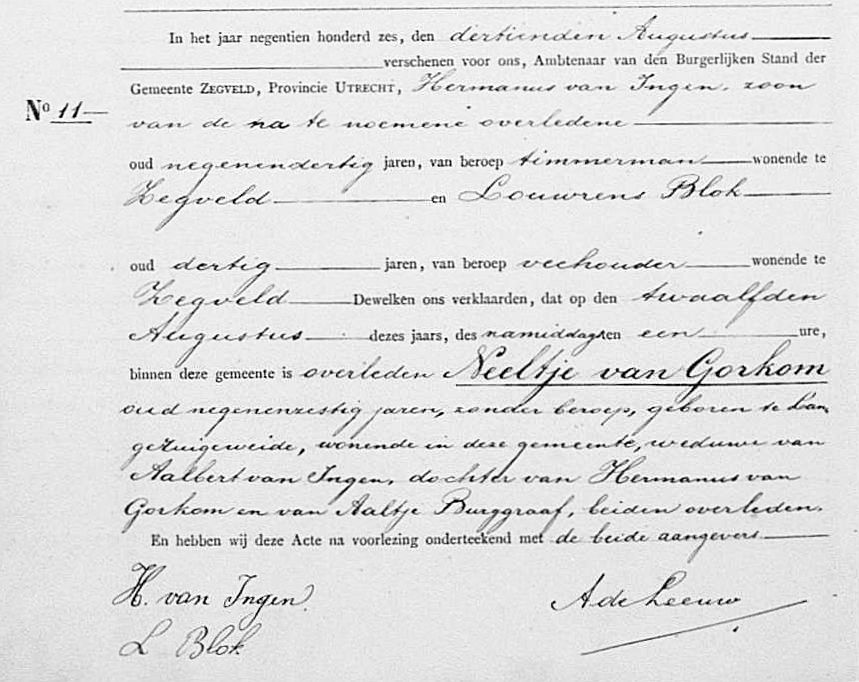 In het jaar negentien honderd zes, den dertienden Augustus
verschenen voor ons, Ambtenaar van den Burgerlijken Stand der
Gemeente ZEGVELD, Provincie UTRECHT, Hermanus van Ingen, zoon
No 11
van de na te noemene overledene
oud negenendertig jaren, van beroep timmerman wonende te
Zegveld en Louwrens Blok
oud dertig jaren, van beroep veehouder wonende te
Zegveld Dewelken ons verklaarden, dat op den twaalfden
Augustus dezes jaars, des namiddags ten een ure,
binnen deze gemeente is overleden Neeltje van Gorkom
oud negenenzestig jaren, zonder beroep, geboren te Lan
geruigeweide, wonende in deze gemeente, weduwe van
Aalbert van Ingen, dochter van Hermanus van
Gorkom en van Aaltje Burggraaf, beiden overleden.
En hebben wij deze Acte na voorlezing onderteekend met de beide aangevers
H. van Ingen. A de Leeuw
L Blok